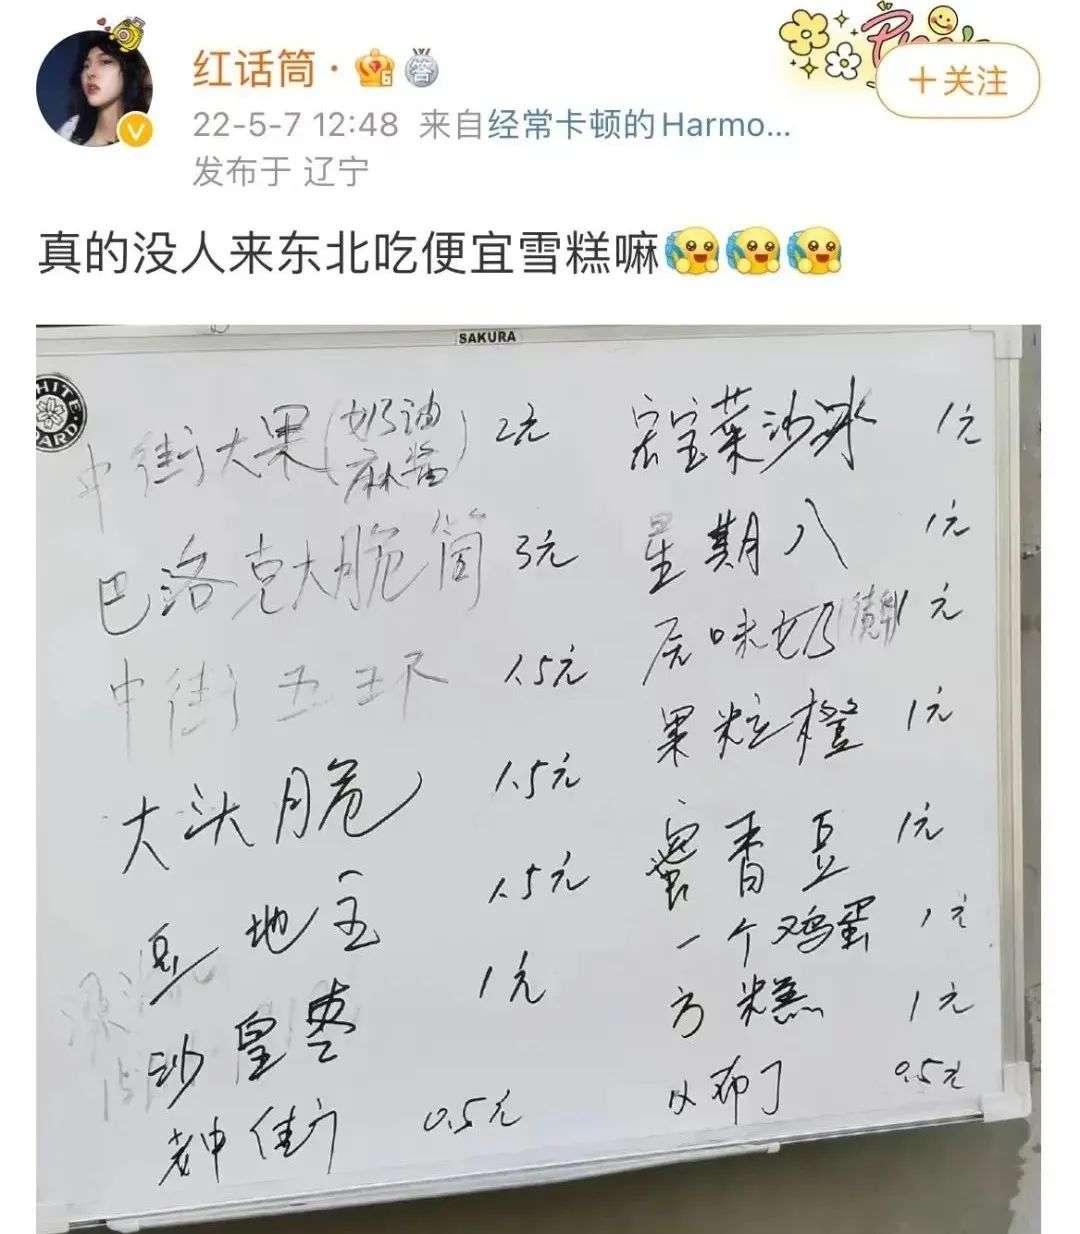 红话筒·
答
+关注
22-5-7 12:48 来自经常卡顿的Harmo...
发布于 辽宁
真的没人来东北吃便宜雪糕嘛
SAKURA
中街大果(奶油 麻酱) 2元
巴洛克大脆筒 3元
中街五环 1.5元
大头脆 1.5元
豆地主 1.5元
沙皇枣 1元
老中街 0.5元
宏宝莱沙冰 1元
星期八 1元
原味奶 1元
果粒橙 1元
蜜香豆 1元
一个鸡蛋 1元
方糕 1元
布丁 0.5元